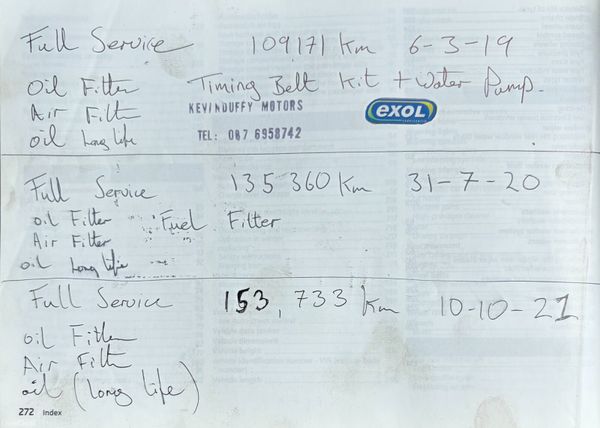 Full Service 109171 Km 6-3-19
Oil Filter Timing Belt Kit + Water Pump.
Air Filter KEVIN DUFFY MOTORS EXOL
oil Long life TEL: 087 6958742
Full Service 135 360 Km 31-7-20
oil Filter Fuel Filter
Air Filter
oil Long life
Full Service 153,733 Km 10-10-21
oil Filter
Air Filter
oil (long life)
272 Index